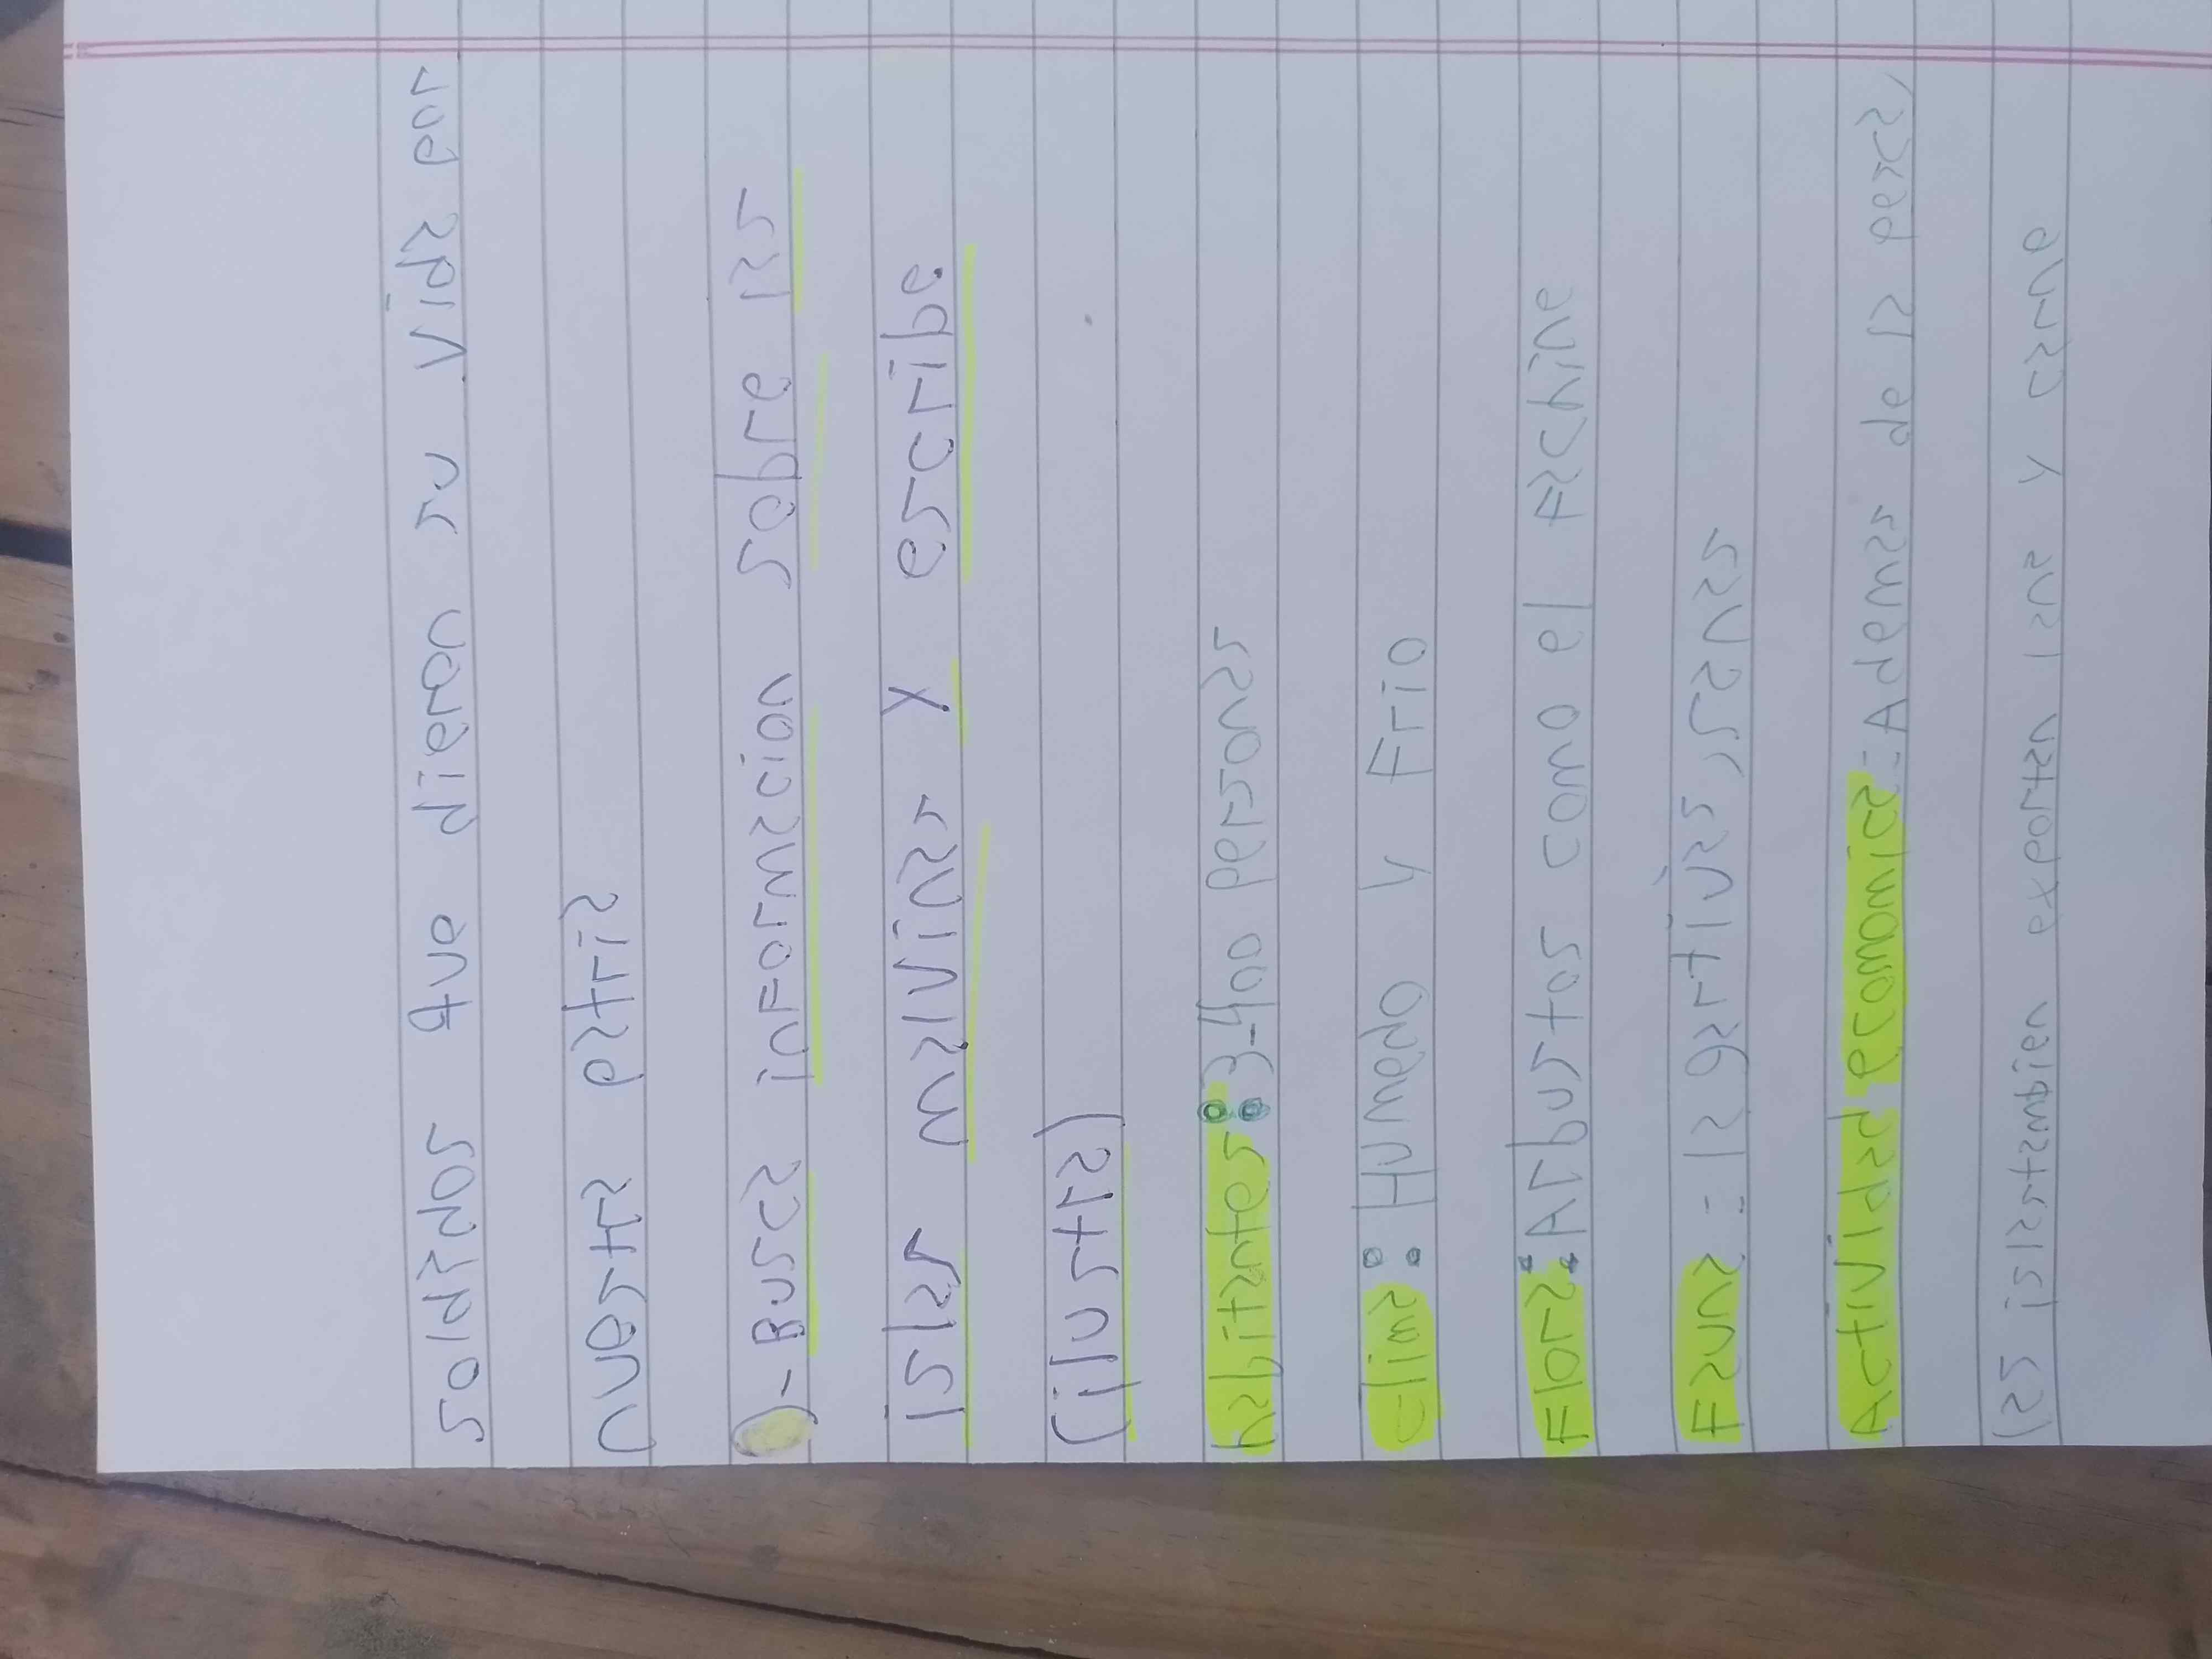 soldados que dieran su vida por
nuestra patria
)-Busca informacion sobre las
islas malvinas y escribe
(ilustra)
habitantes:3-400 personas
clima: Humedo y Frio
Flora: Arbustos como el Fachine
Fauna: la gartijas
Actividad economica: Ademas de la pesca,
las islas tambien exportan lana y carne